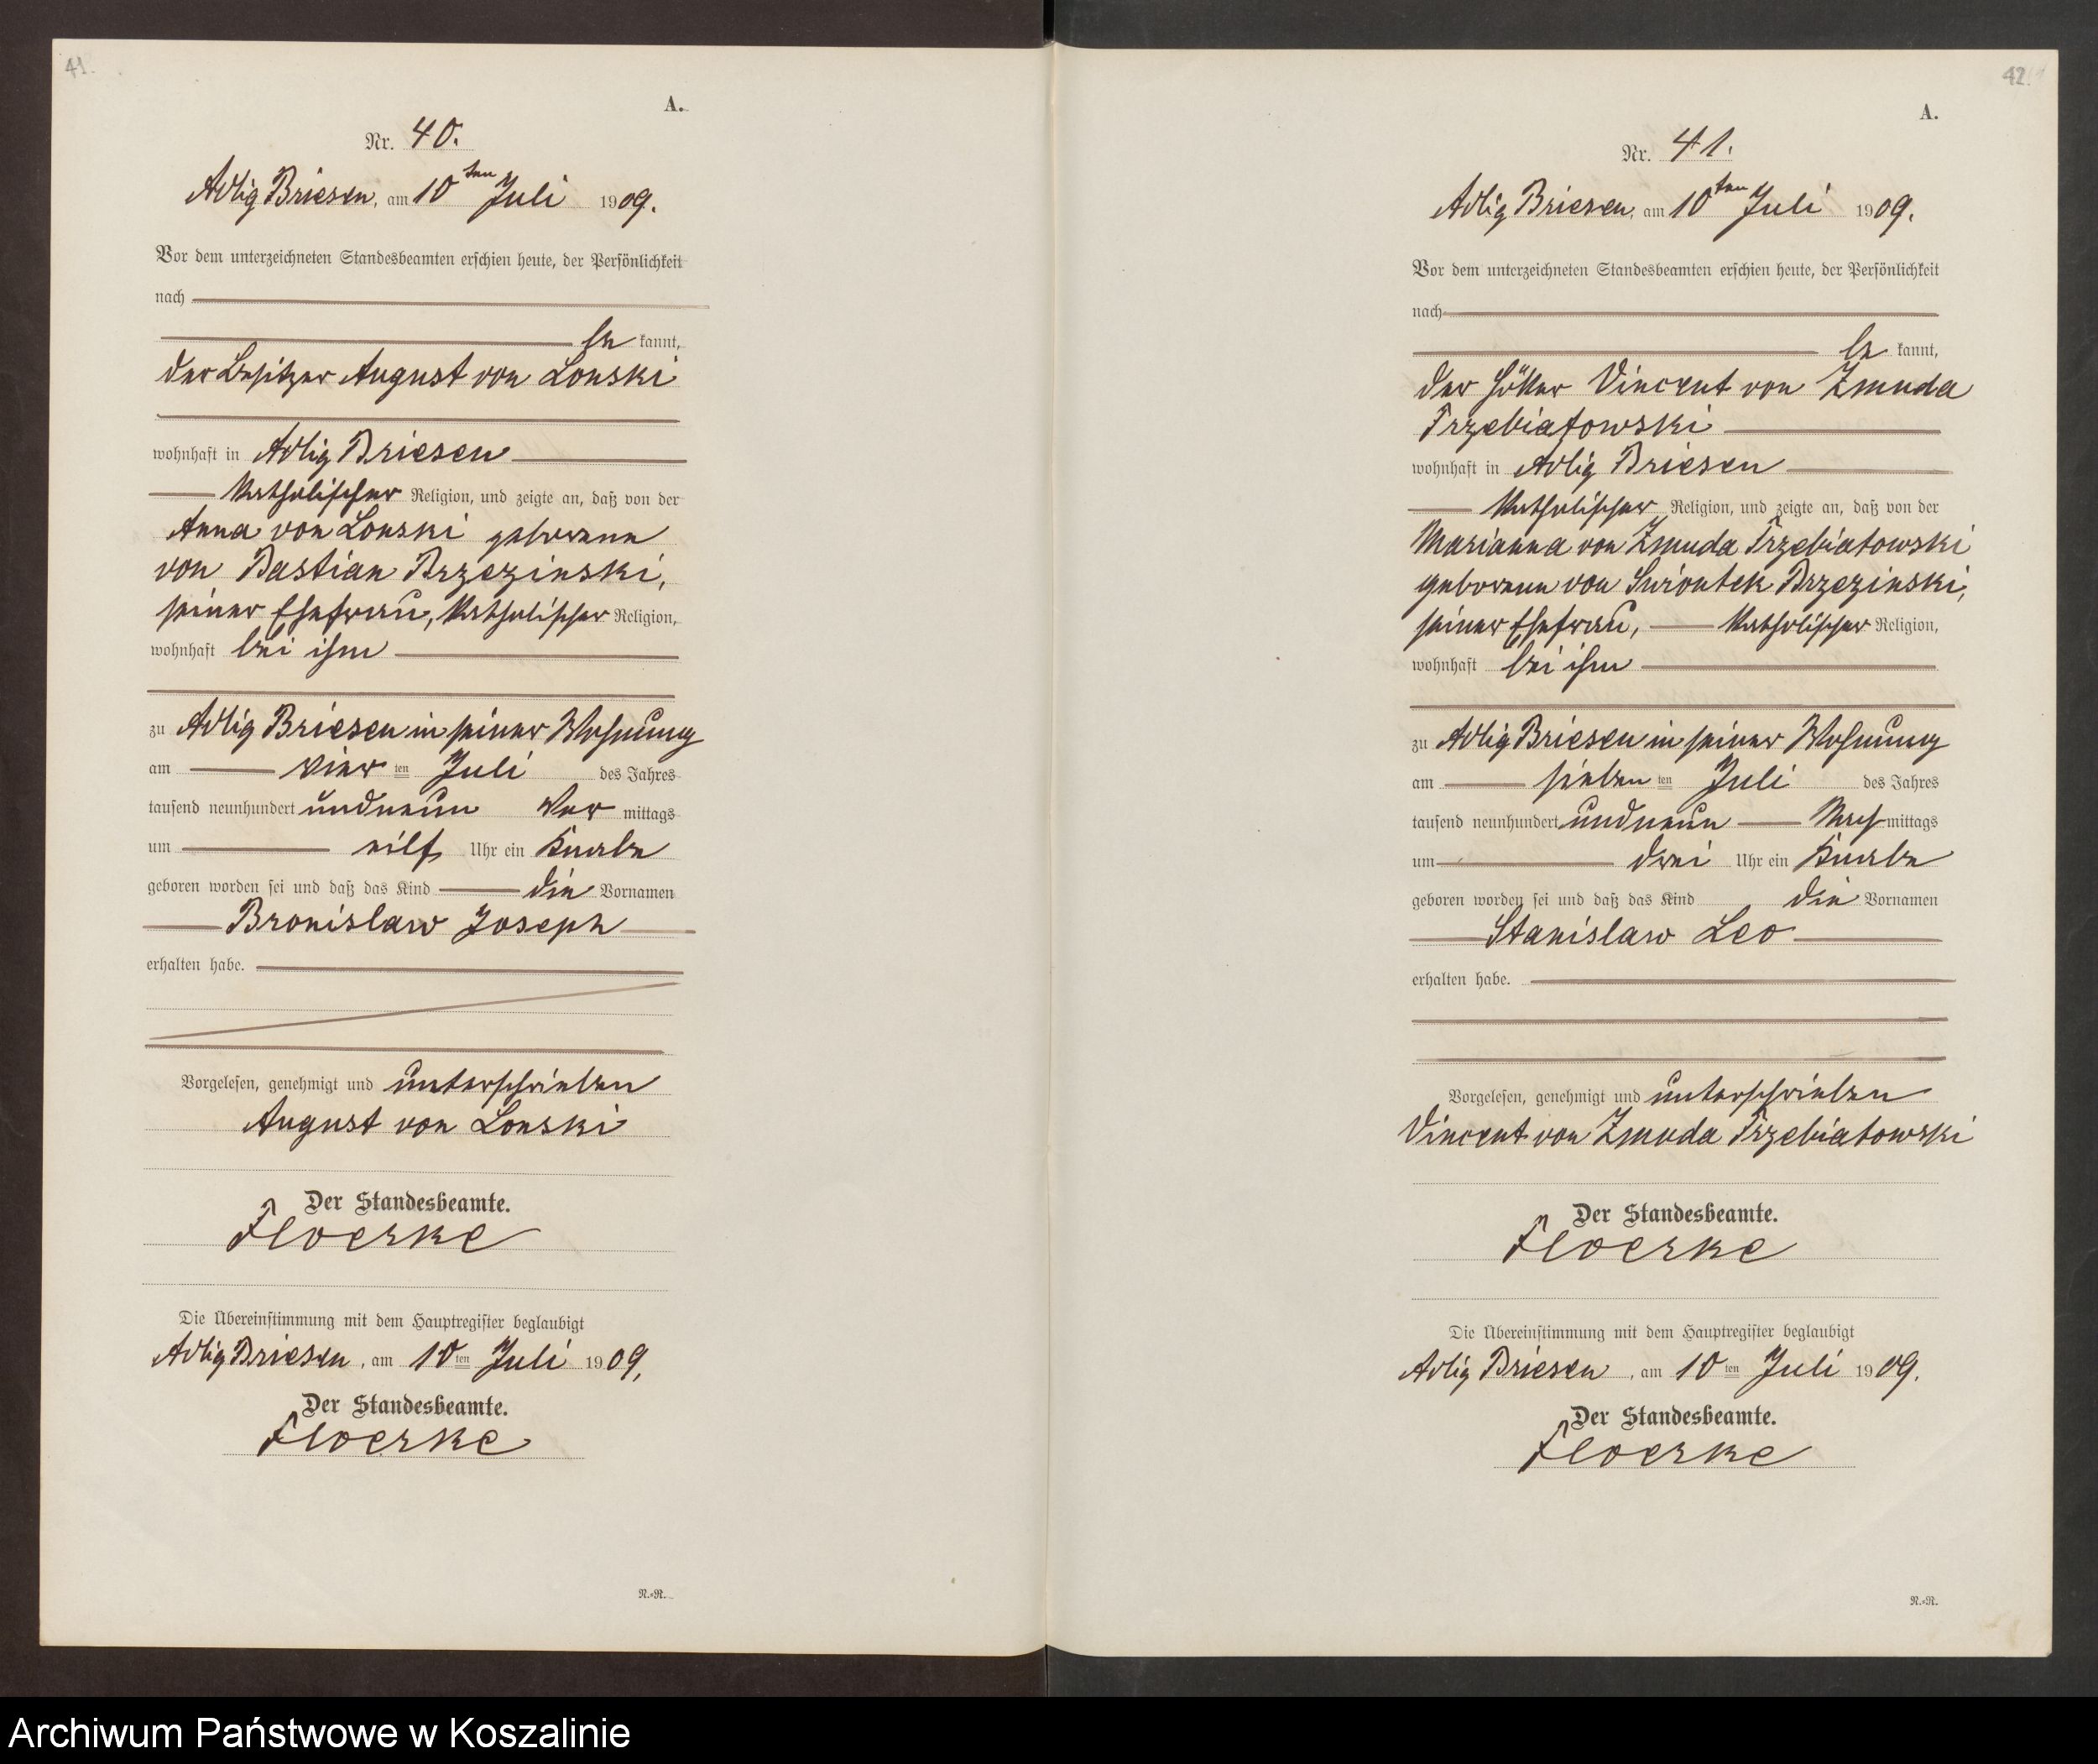 41.
A.
Nr. 40.
Adlig Briesen, am 10ten Juli 1909.
Vor dem unterzeichneten Standesbeamten erschien heute, der Persönlichkeit
nach
be kannt,
der Besitzer August von Lonski
wohnhaft in Adlig Briesen
katholischer Religion, und zeigte an, daß von der
Anna von Lonski geborene
von Bastian Brzezinski,
seiner Ehefrau, katholischer Religion,
wohnhaft bei ihm
zu Adlig Briesen in seiner Wohnung
am vier ten Juli des Jahres
tausend neunhundert undneun Vor mittags
um eilf Uhr ein Knabe
geboren worden sei und daß das Kind die Vornamen
Bronislaw Joseph
erhalten habe.
Vorgelesen, genehmigt und unterschrieben
August von Lonski
Der Standesbeamte.
Floerke
Die Übereinstimmung mit dem Hauptregister beglaubigt
Adlig Briesen, am 10ten Juli 1909,
Der Standesbeamte.
Floerke
N.=N.
42.
A.
Nr. 41.
Adlig Briesen, am 10ten Juli 1909.
Vor dem unterzeichneten Standesbeamten erschien heute, der Persönlichkeit
nach
be kannt,
der Vincent von Zmuda
Trzebiatowski
wohnhaft in Adlig Briesen
katholischer Religion, und zeigte an, daß von der
Marianna von Zmuda Trzebiatowski
geborene von Swiontek Brzezinski,
seiner Ehefrau, katholischer Religion,
wohnhaft bei ihm
zu Adlig Briesen in seiner Wohnung
am sieben ten Juli des Jahres
tausend neunhundert undneun Nach mittags
um drei Uhr ein Knabe
geboren worden sei und daß das Kind die Vornamen
Stanislaw Leo
erhalten habe.
Vorgelesen, genehmigt und unterschrieben
Vincent von Zmuda Trzebiatowski
Der Standesbeamte.
Floerke
Die Übereinstimmung mit dem Hauptregister beglaubigt
Adlig Briesen, am 10ten Juli 1909.
Der Standesbeamte.
Floerke
N.=N.
Archiwum Państwowe w Koszalinie